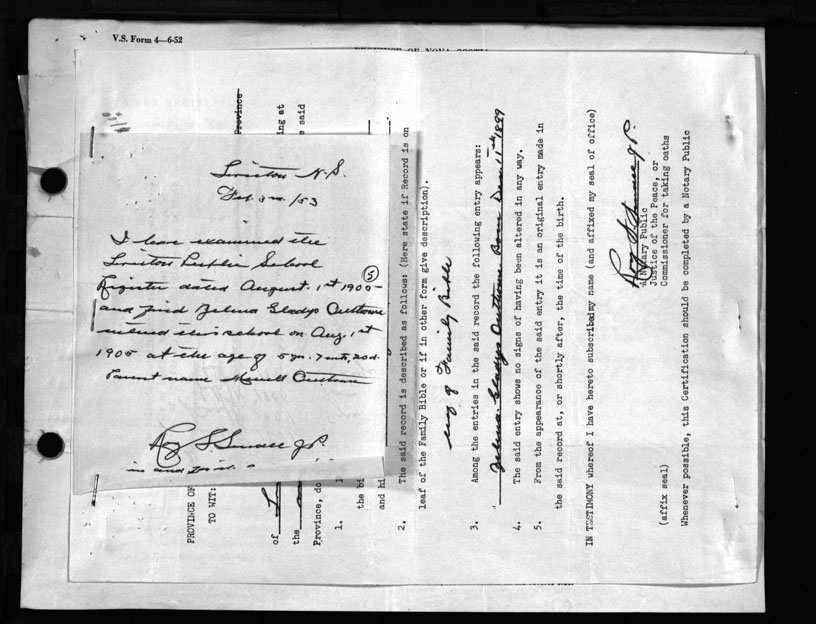 V.S. Form 4—6-52
PROVINCE OF NOVA SCOTIA
Tiverton N.S.
Feb. 3rd /53
I have examined the
Tiverton Public School
Register dated August. 1st 1905
5
and find Zelma Gladys Outhouse
entered this school on Aug. 1st
1905 at the age of 5 yr. 7 mts, 20 d.
Parent name Outhouse
Roy S Small J.P.
in and for
Province
ing at
e said
PROVINCE OF
TO WIT:
of
the
Province, do
1. I
the bi
and hi
2. The said record is described as follows: (Here state if Record is on
leaf of the Family Bible or if in other form give description).
of Family Bible
3. Among the entries in the said record the following entry appears:
Zelma Gladys Outhouse Born Dec. 11th 1899
4. The said entry shows no signs of having been altered in any way.
5. From the appearance of the said entry it is an original entry made in
the said record at, or shortly after, the time of the birth.
IN TESTIMONY whereof I have hereto subscribed my name (and affixed my seal of office)
Roy S Small J.P.
A Notary Public
Justice of the Peace, or
Commissioner for taking oaths
(affix seal)
Whenever possible, this Certification should be completed by a Notary Public